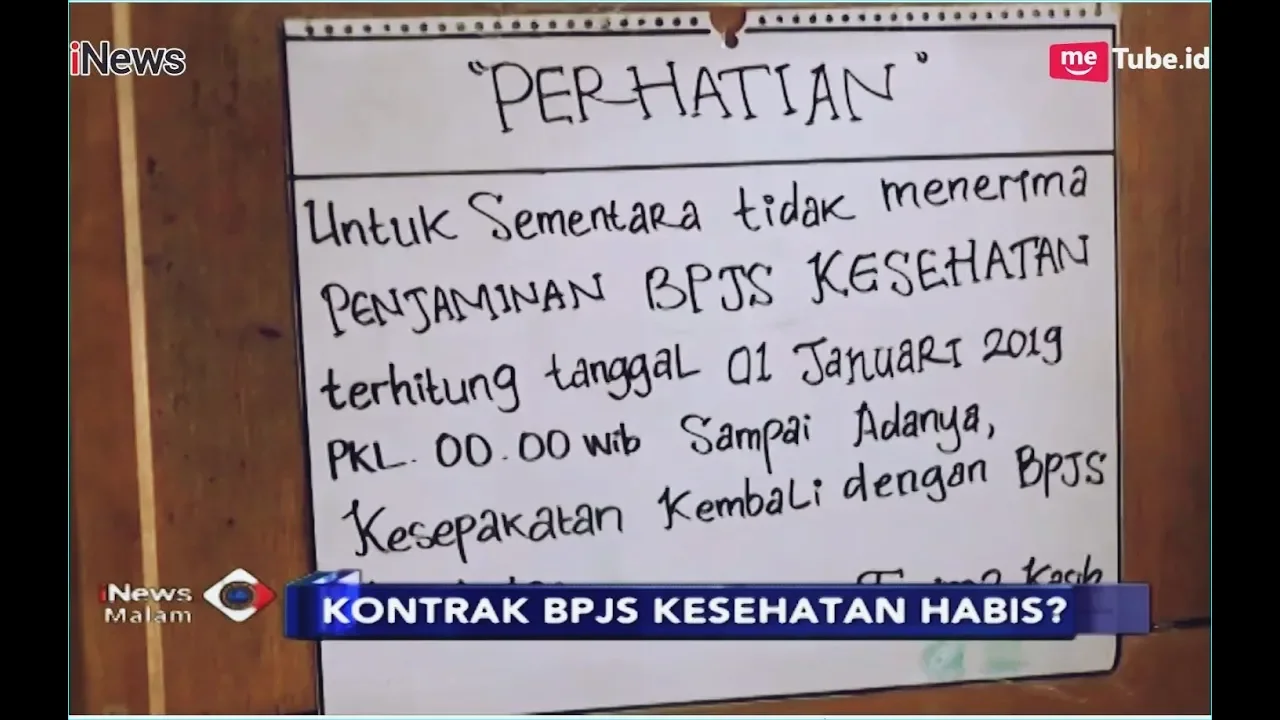 iNews
me Tube.id
"PERHATIAN"
Untuk Sementara tidak menerima
PENJAMINAN BPJS KESEHATAN
terhitung tanggal 01 Januari 2019
PKL. 00.00 wib Sampai Adanya,
Kesepakatan Kembali dengan BPJS
Kasih
iNews
Malam
KONTRAK BPJS KESEHATAN HABIS?